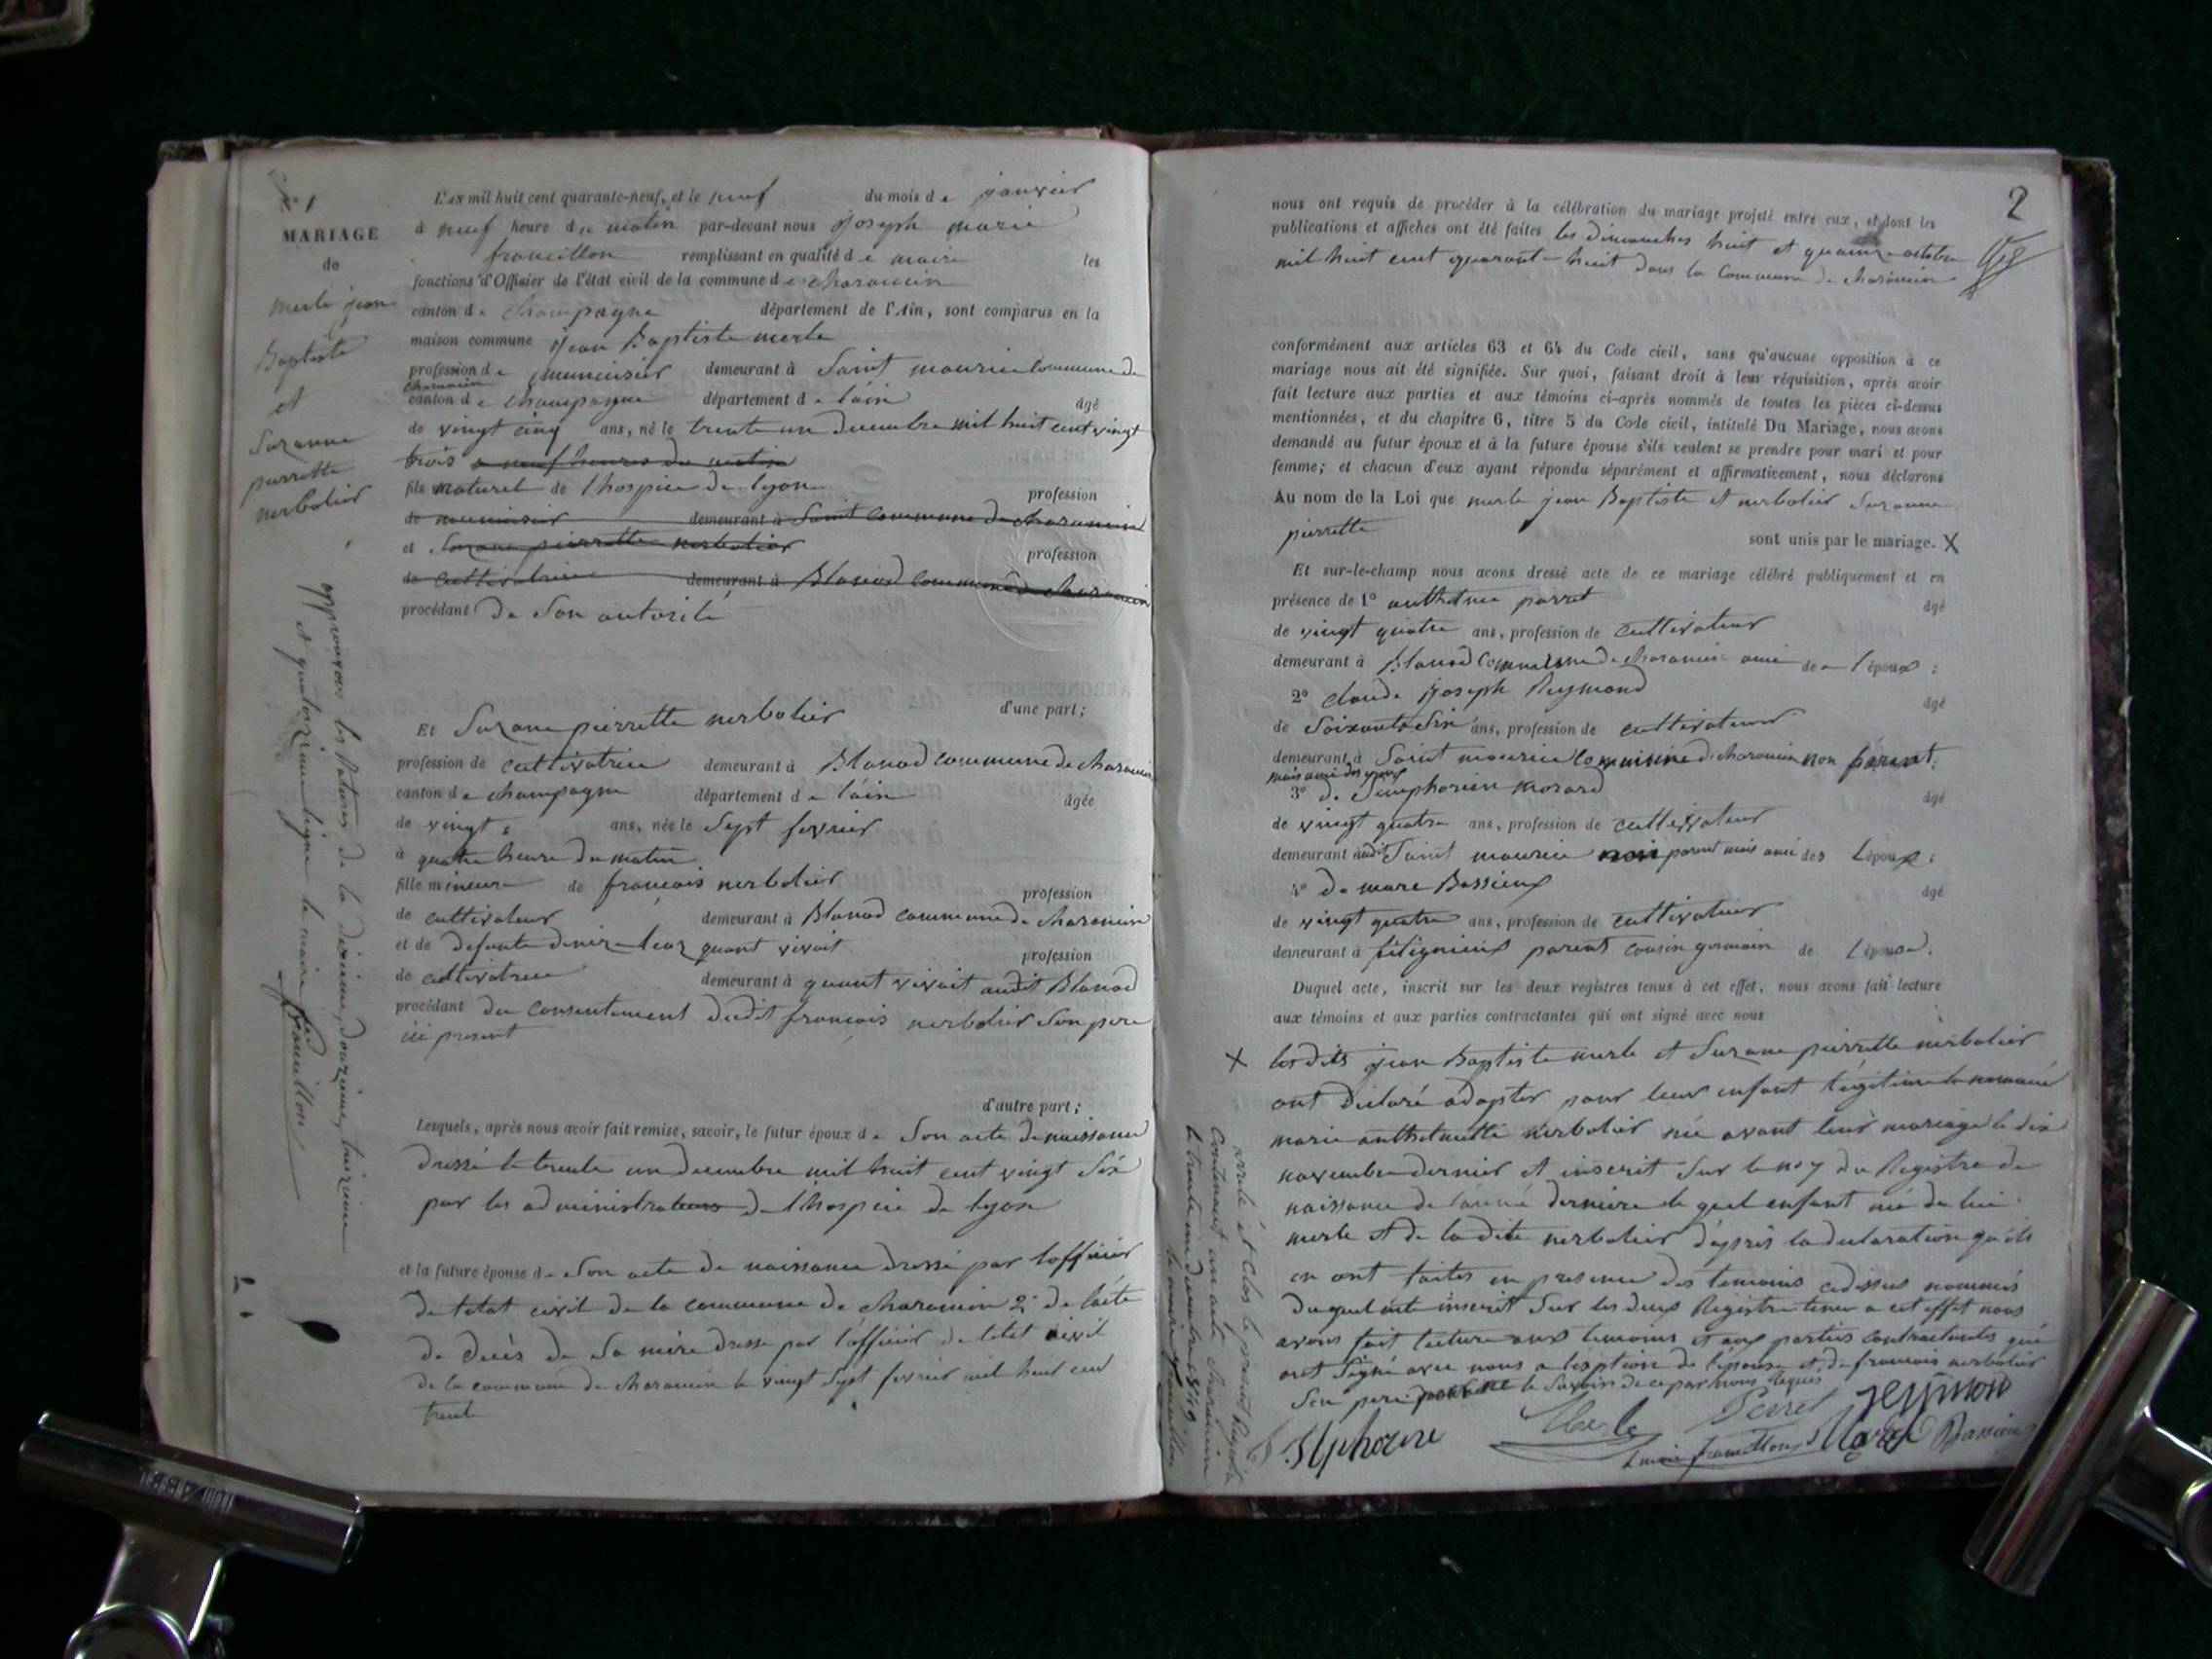 N° 1
MARIAGE
de
merle jean
Baptiste
et
Suzanne
pierrette
nerbolier
L'AN mil huit cent quarante-neuf, et le neuf du mois de janvier
à neuf heure du matin par-devant nous joseph marie
francillon remplissant en qualité de maire les
fonctions d'Officier de l'état civil de la commune de charancin
canton de champagne département de l'Ain, sont comparus en la
maison commune jean Baptiste merle
profession de menuisier demeurant à Saint maurice commune de
charancin
canton de champagne département de l'ain âgé
de vingt cinq ans, né le trente un decembre mil huit cent vingt
trois a neuf heures du matin
fils naturel de l'hospice de lyon profession
de menuisier demeurant à Saint commune de charancin
et Suzane pierrette nerbolier profession
de cultivatrice demeurant à Blanod commune de charancin
procédant de Son autorité
d'une part;
Et Suzane pierrette nerbolier
profession de cultivatrice demeurant à Blanod commune de charancin
canton de champagne département de l'ain âgée
de vingt ans, née le Sept fevrier
à quatre heure du matin
fille mineure de francois nerbolier profession
de cultivateur demeurant à Blanod commune de charancin
et de defunte quant vivait profession
de cultivatrice demeurant à quant vivait audit Blanod
procédant du consentement dudit francois nerbolier Son pere
ici present
d'autre part;
Lesquels, après nous avoir fait remise, savoir, le futur époux de Son acte de naissance
dressé le trente un decembre mil huit cent vingt Six
par les administrateurs de l'hospice de lyon
et la future épouse de Son acte de naissance dressé par l'officier
de letat civil de la commune de charancin 2° de l'acte
de decès de Sa mère dressé par l'officier de letat civil
de la commune de charancin le vingt Sept fevrier mil huit cent
trent
approuvons les ratures de la dixieme, douzieme, treizieme
et quatorzieme ligne le maire francillon
2
nous ont requis de procéder à la célébration du mariage projeté entre eux, et dont les
publications et affiches ont été faites les dimanches huit et quinze octobre
mil huit cent quarante-huit dans la Commune de charancin
conformément aux articles 63 et 64 du Code civil, sans qu'aucune opposition à ce
mariage nous ait été signifiée. Sur quoi, faisant droit à leur réquisition, après avoir
fait lecture aux parties et aux témoins ci-après nommés de toutes les pièces ci-dessus
mentionnées, et du chapitre 6, titre 5 du Code civil, intitulé Du Mariage, nous avons
demandé au futur époux et à la future épouse s'ils veulent se prendre pour mari et pour
femme; et chacun d'eux ayant répondu séparément et affirmativement, nous déclarons
Au nom de la Loi que merle jean Baptiste et nerbolier Suzanne
pierrette sont unis par le mariage. X
Et sur-le-champ nous avons dressé acte de ce mariage célébré publiquement et en
présence de 1° anthelme perret âgé
de vingt quatre ans, profession de cultivateur
demeurant à Blanod commune de charancin ami de l'époux;
2° claude joseph Reymond âgé
de Soixante Six ans, profession de cultivateur
demeurant à Saint maurice commune de charancin non parent
mais ami des epoux
3° de Simphorien morard âgé
de vingt quatre ans, profession de cultivateur
demeurant audit Saint maurice non parent mais ami des Lépoux;
4° de marc Bassieux âgé
de vingt quatre ans, profession de cultivateur
demeurant à parent cousin germain de Lépouse.
Duquel acte, inscrit sur les deux registres tenus à cet effet, nous avons fait lecture
aux témoins et aux parties contractantes qui ont signé avec nous
X les dits jean Baptiste merle et Suzane pierrette nerbolier
ont déclaré adopter pour leur enfant légitime la nommée
marie anthelmette nerbolier née avant leur mariage le dix
novembre dernier et inscrit Sur le no 7 du Registre de
naissance de l'année derniere le quel enfant né de lui
merle et de la dite nerbolier d'après la declaration qu'ils
en ont faites en presence des temoins cidessus nommés
duquel acte inscrit Sur les deux Registre tenu a cet effet nous
avons fait lecture aux temoins et aux parties contractantes qui
ont Signé avec nous a l'exption de l'épouse et de francois nerbolier
Son pere pour ne le Savoir de ce par nous Requis
Merle Perret reymond
le maire francillon Morard Bassieux
arrêté et Clos le present Registre
Contenant un acte charancin
le trente un decembre 1849
le maire francillon